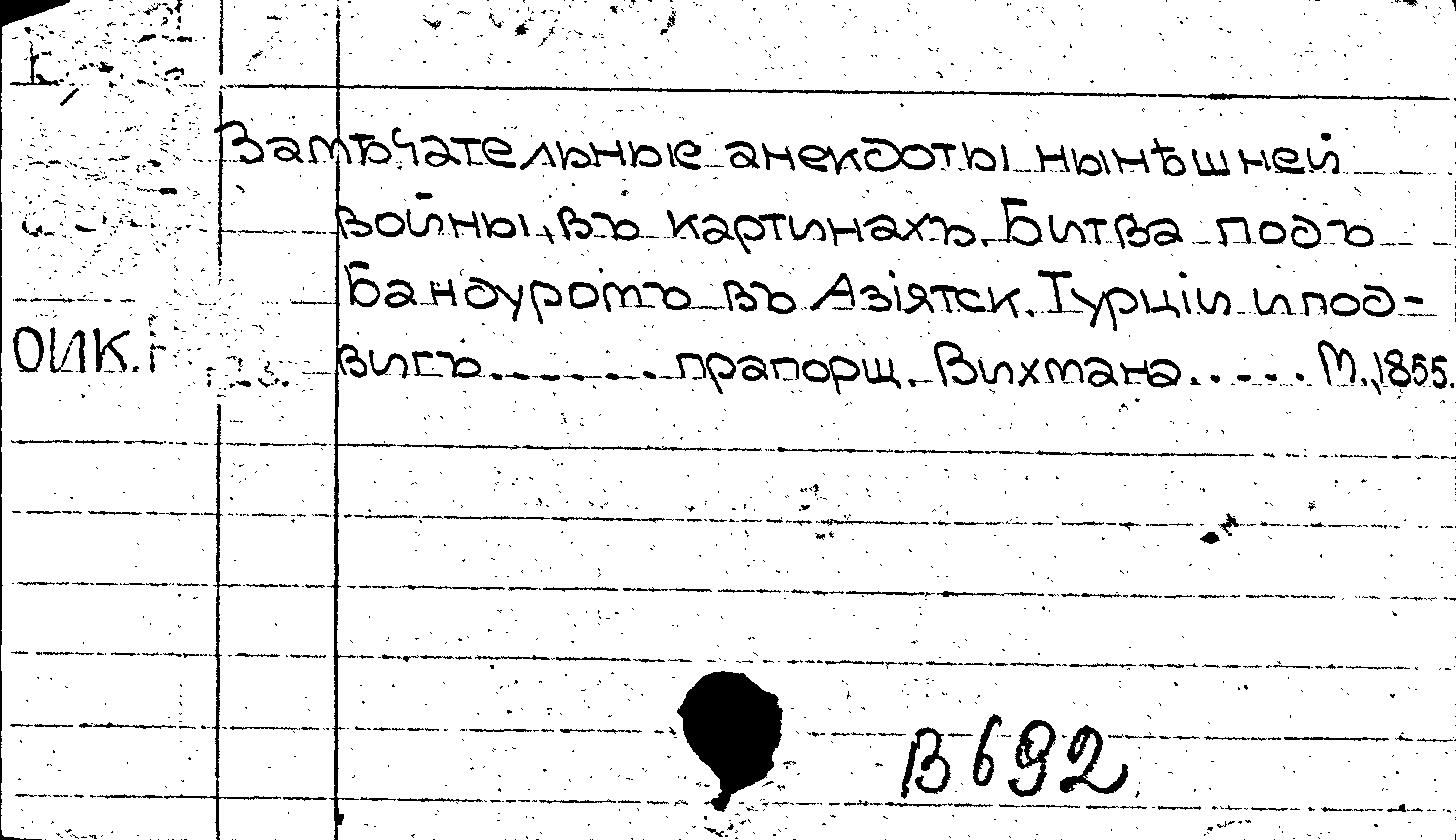 Замѣчательные анекдоты нынѣшней
войны, въ картинахъ. Битва подъ
Бандуромъ въ Азіятск. Турціи и под-
ОИК. вигъ....... прапорщ. Вихмана..... М., 1855.
В 692